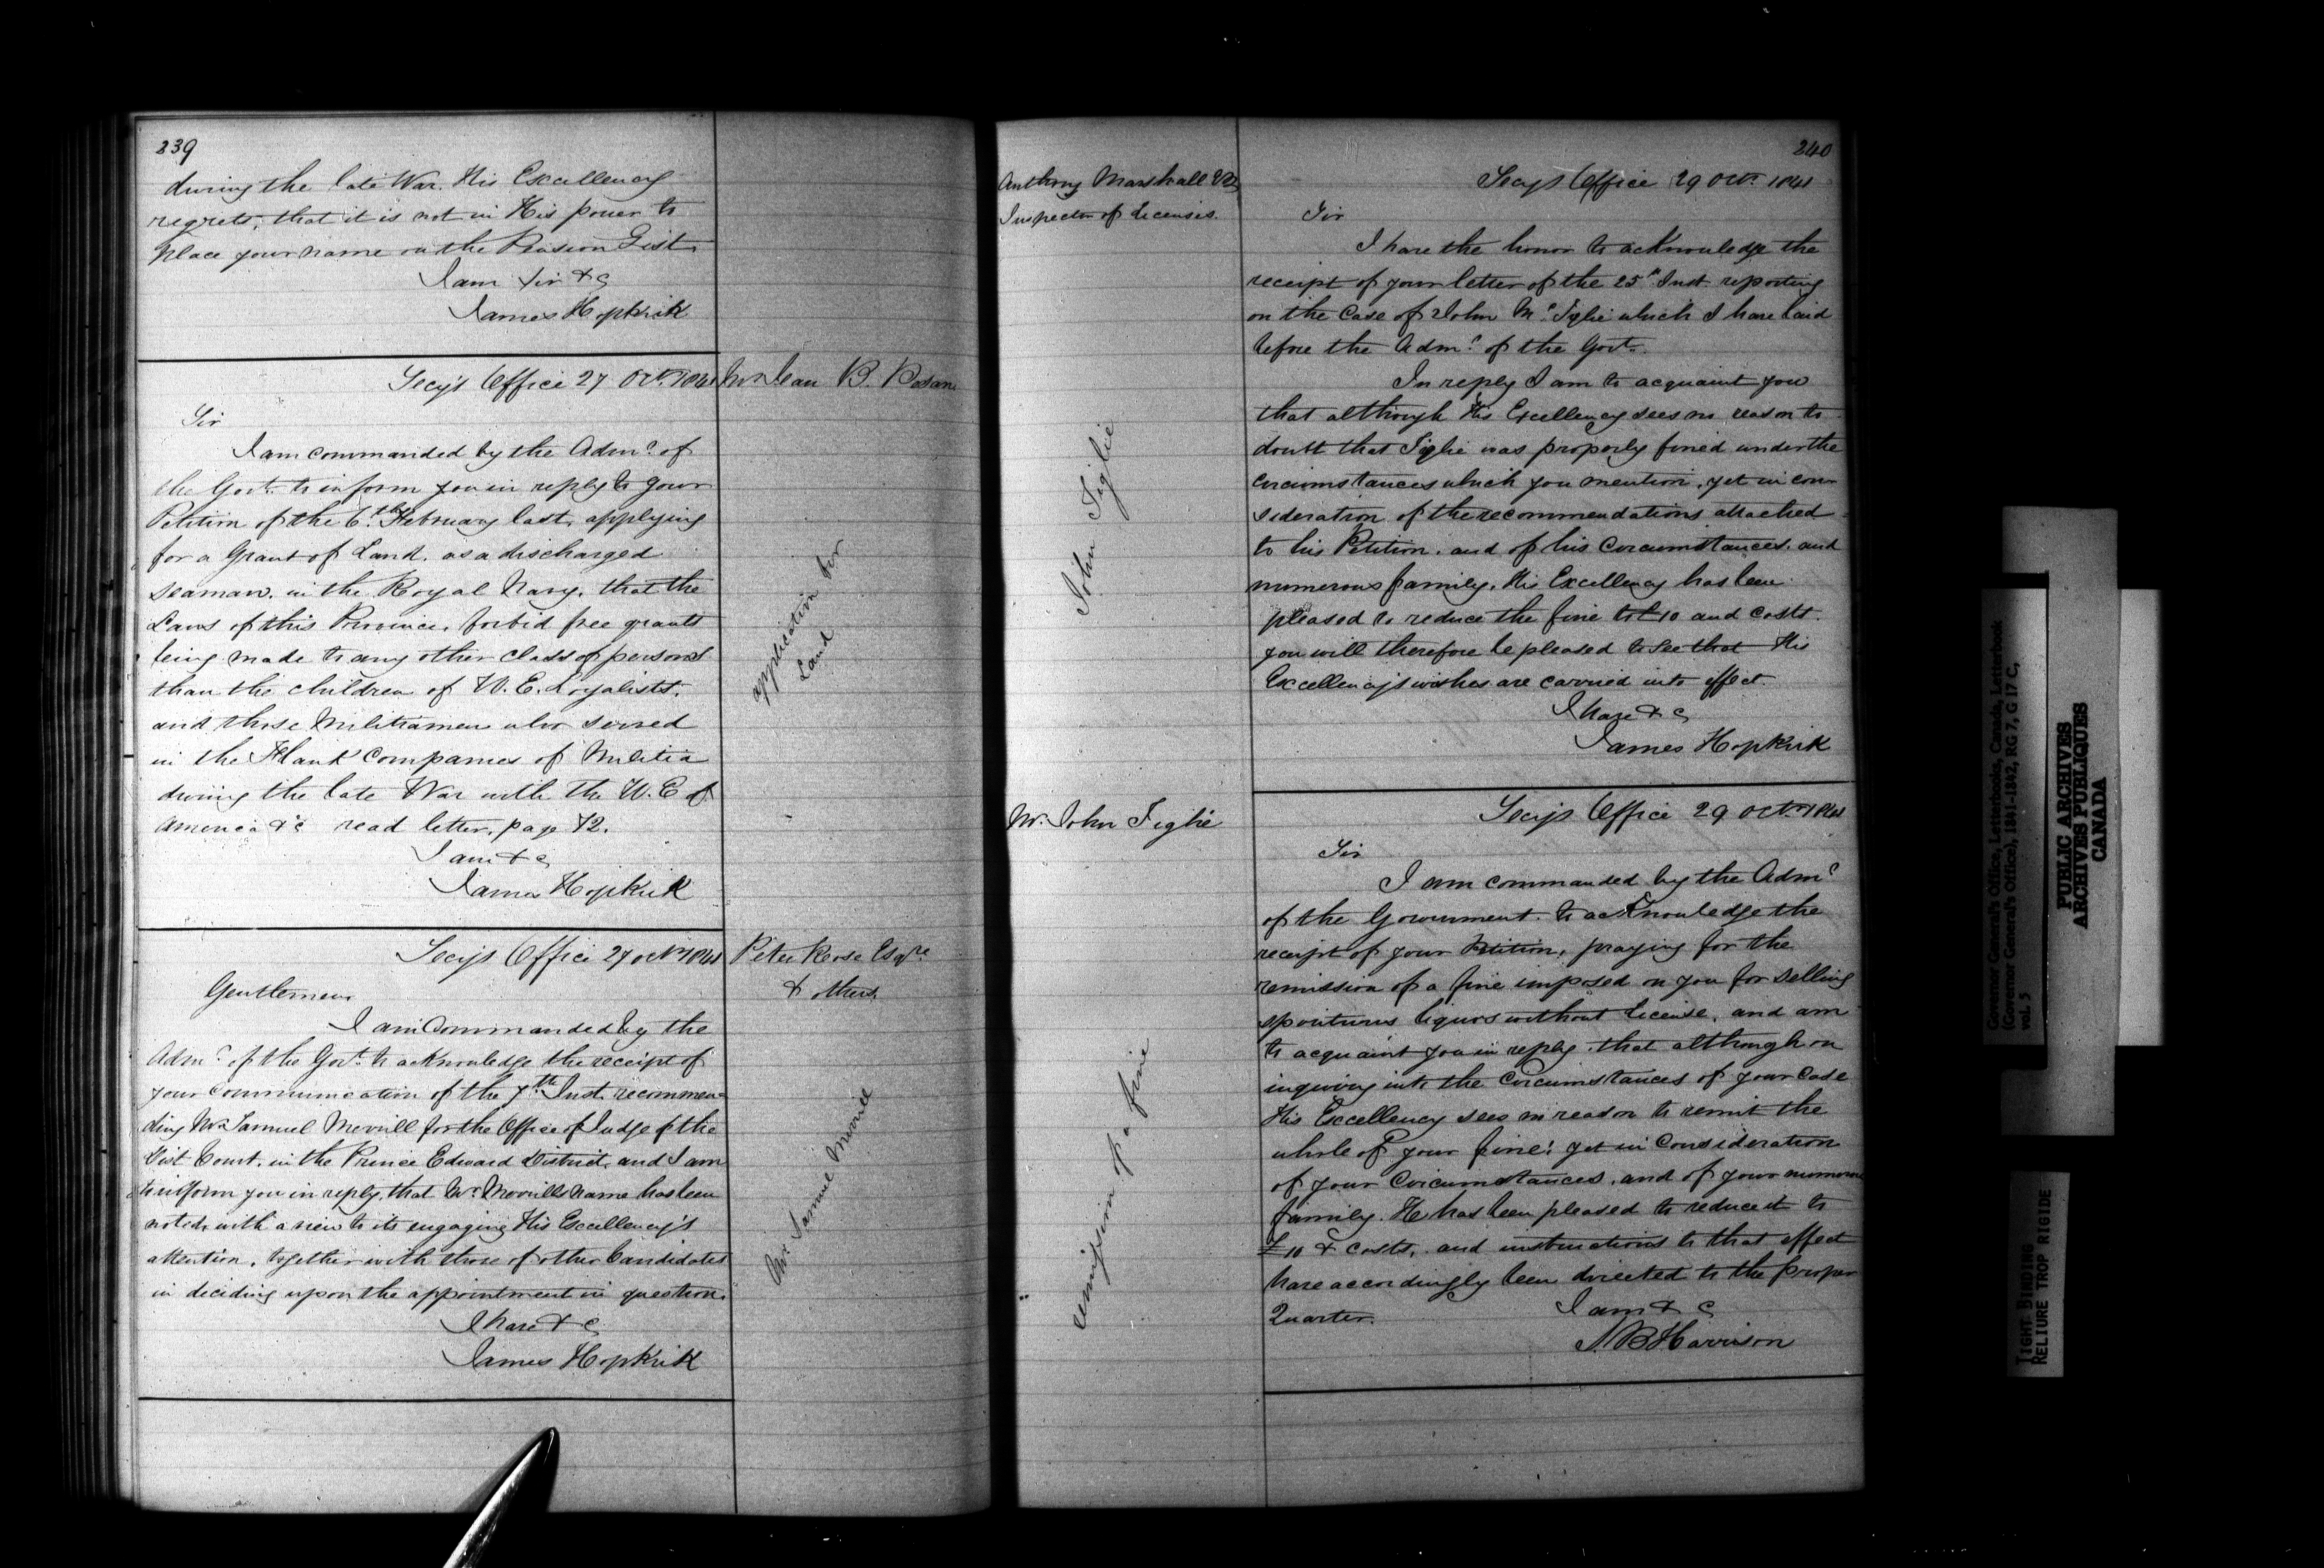 239
during the late War. His Excellency
regrets, that it is not in His power to
place your name on the Pension List.
I am Sir &c
James Hopkirk
Secy's Office 27 Octr. 1841
Mr Jean B.
Sir
I am commanded by the Admr. of
the Govt. to inform you in reply to your
Petition of the 6th. February last, applying
for a Grant of Land, as a discharged
seaman, in the Royal Navy, that the
Laws of this Province, forbid free grants
being made to any other class of persons
than the children of U. E. Loyalists,
and those Militiamen who served
in the Flank Companies of Militia
during the late War with the U. S of
America &c read letter, page 72.
I am &c
James Hopkirk
application for
Land
Secy's Office 27 Octr 1841
Peter Rose Esqre
& others
Gentlemen
I am Commanded by the
Admr. of the Govt. to acknowledge the receipt of
your Communication of the 7th Inst. recommen-
ding Mr Samuel Merrill for the Office of Judge of the
Dist Court, in the Prince Edward District, and I am
to inform you in reply, that Mr. Merrills name has been
noted, with a view to its engaging His Excellency's
attention, together with those of other Candidates
in deciding upon the appointment in question.
I have &c
James Hopkirk
Mr Samuel Merrill
240
Anthony Marshall
Inspector of Licenses.
Secy's Office 29 Octr. 1841
Sir
I have the honor to acknowledge the
receipt of your letter of the 25th Inst reporting
on the Case of John Mc. Iglie which I have laid
before the Admr. of the Govt.
In reply I am to acquaint you
that although His Excellency sees no reason to
doubt that Iglie was properly fined under the
circumstances which you mention, yet in con-
sideration of the recommendations attached
to his Petition, and of his Circumstances, and
numerous family, His Excellency has been
pleased to reduce the fine to £10 and costs.
you will therefore be pleased to see that His
Excellency's wishes are carried into effect.
I have &c
James Hopkirk
John Siglie
Mr. John Siglie
Secy's Office 29 Octr. 1841
Sir
I am commanded by the Admr
of the Government to acknowledge the
receipt of your Petition, praying for the
remission of a fine imposed on you for selling
spirituous liquors without License, and am
to acquaint you in reply, that although on
inquiring into the Circumstances of your Case
His Excellency sees no reason to remit the
whole of your fine; yet in Consideration
of your Circumstances, and of your numerous
family. He has been pleased to reduce it to
£10 & costs, and instructions to that effect
have accordingly been directed to the proper
Quarter.
I am & c
S. B Harrison
remission of a fine
Governor General's Office, Letterbooks, Canada, Letterbook
(Governor General's Office), 1841-1842, RG 7, G 17 C,
vol. 5
PUBLIC ARCHIVES
ARCHIVES PUBLIQUES
CANADA
TIGHT BINDING
RELIURE TROP RIGIDE